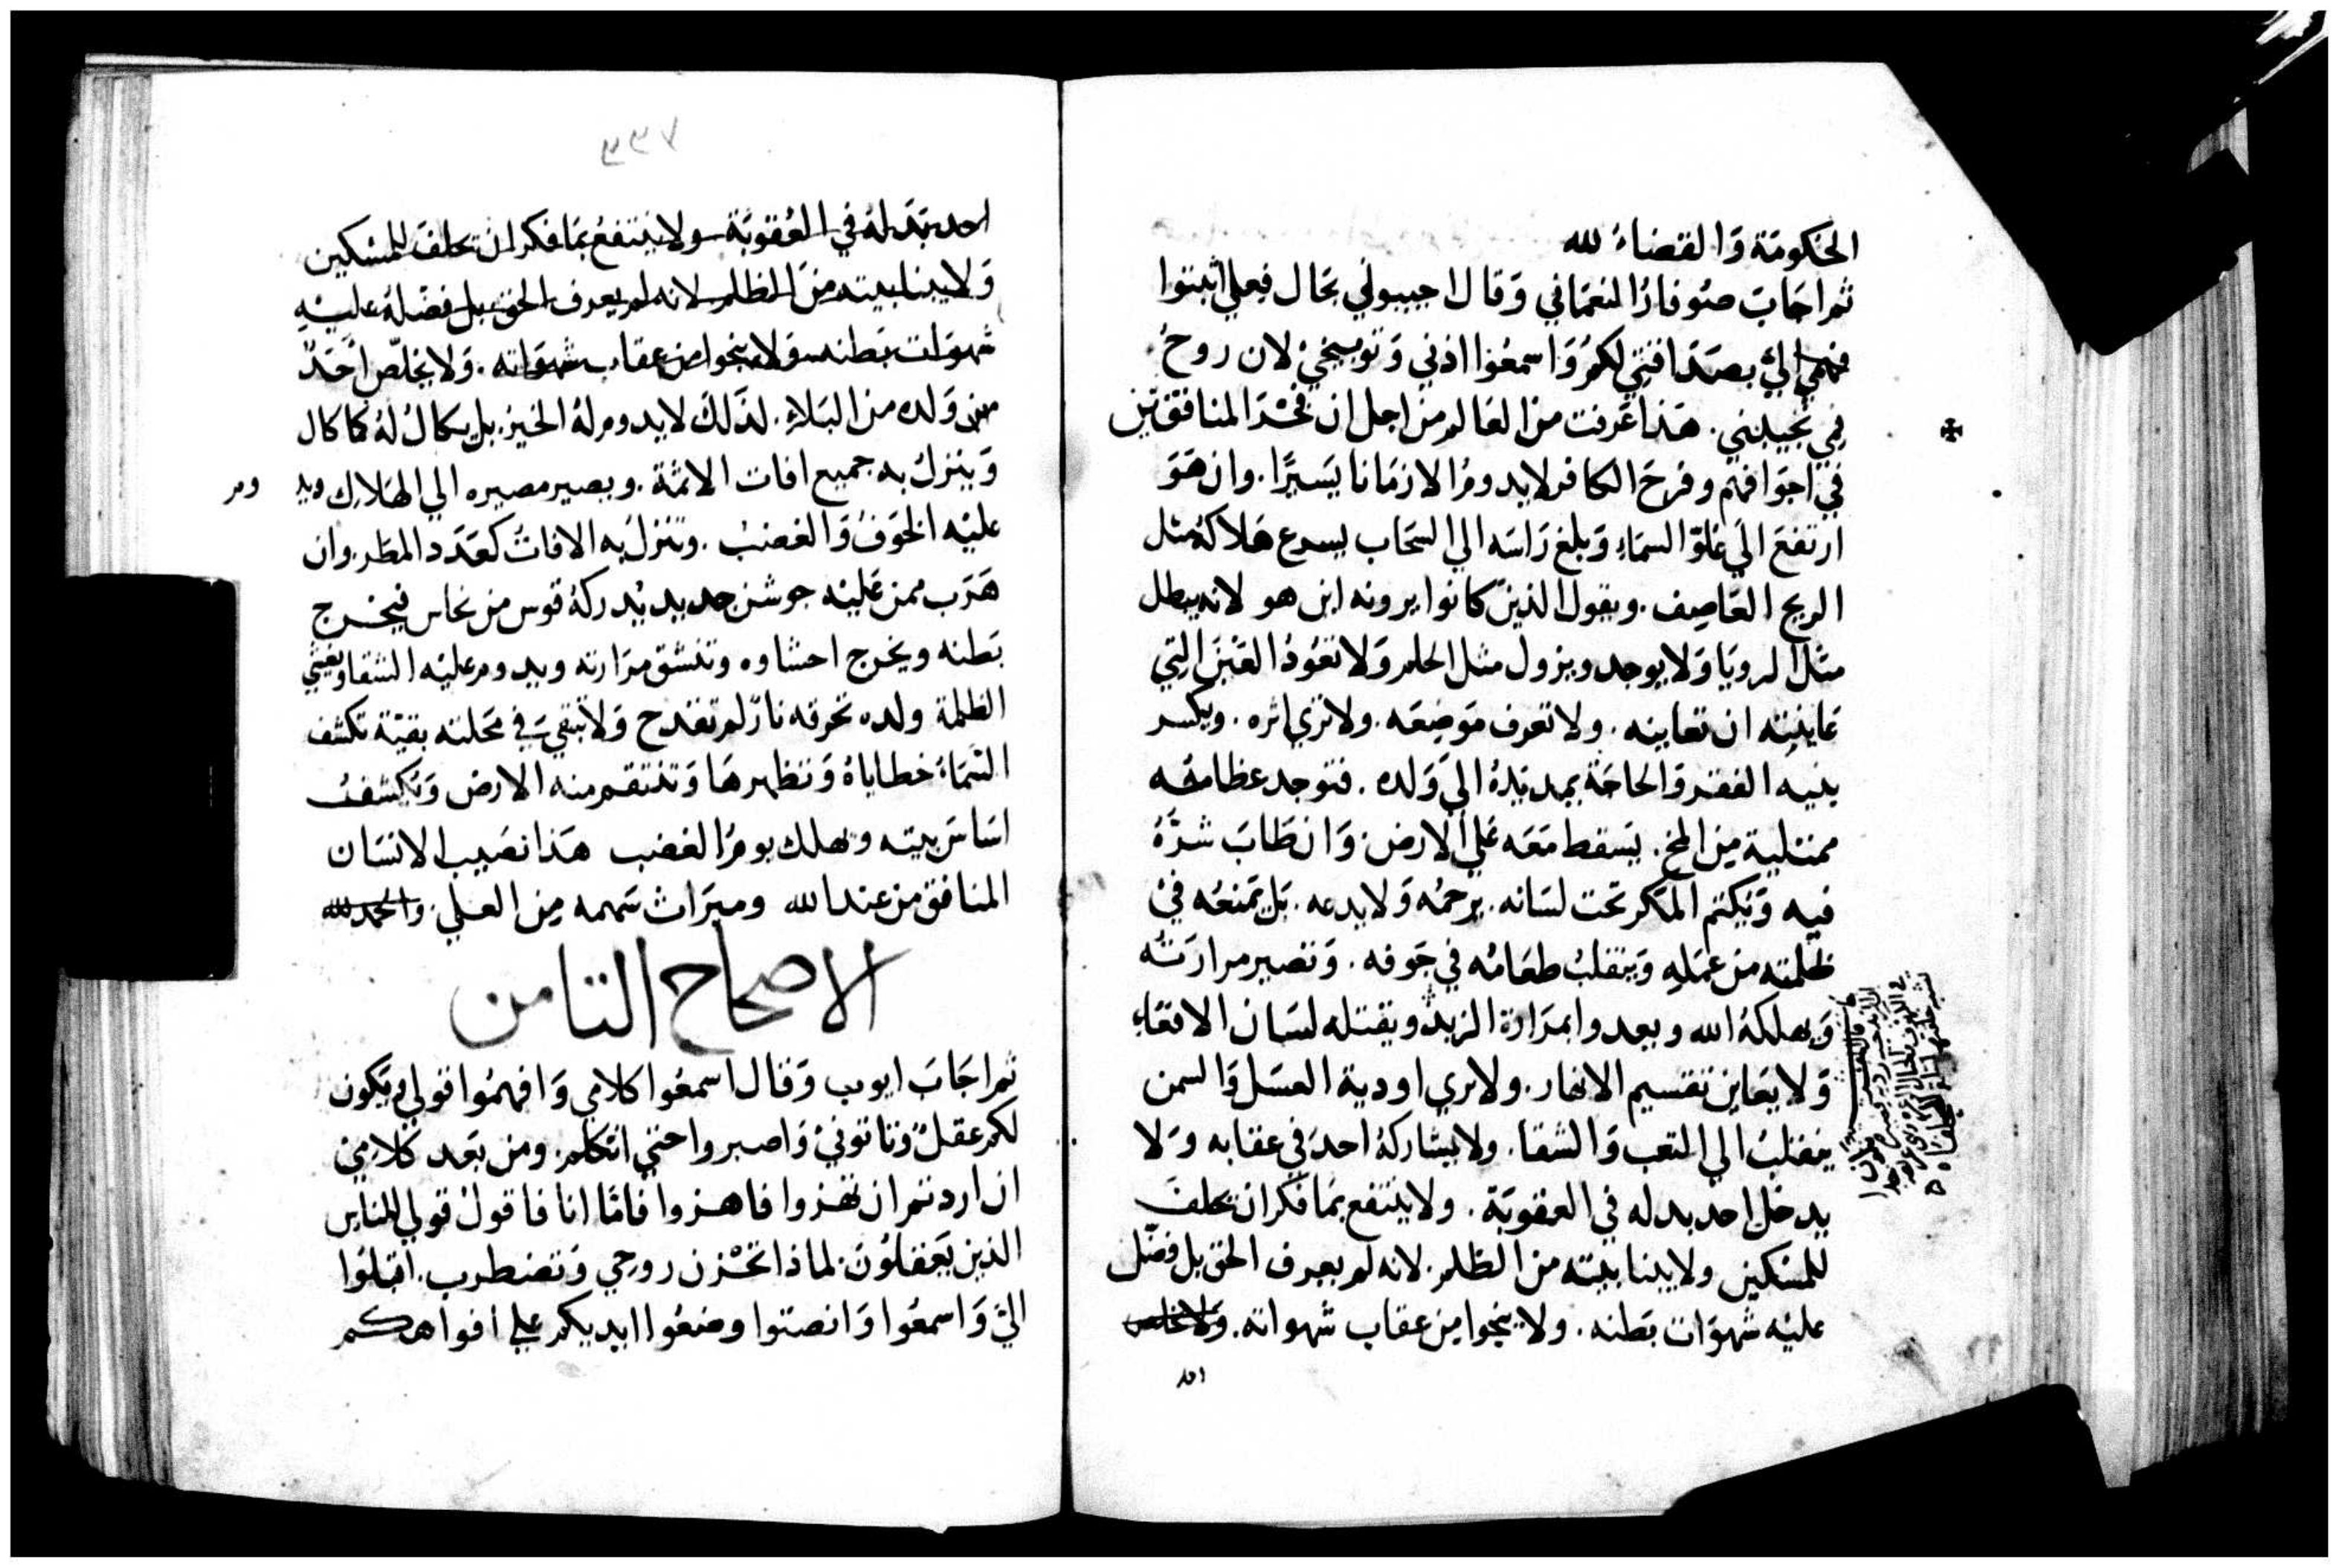 الحكومة والقضاء لله
ثم اجاب صوفار النعماني وقال اجيبوني بحال فعلي اثبتوا
فهمي الي بصداقتي لكم واسمعوا اذني وتوبيخي لان روح
في تجيبني. هذا عرفت من العالم من اجل ان فخر المنافقين
في اجوافهم وفرح الكافر لا يدوم الا زمانا يسيرا. وان هو
ارتفع الي علو السماء وبلغ راسه الي السحاب يسرع هلاكه مثل
الريح العاصف. ويقول الذين كانوا يرونه اين هو لانه يبطل
مثل الرويا ولا يوجد ويزول مثل الحلم ولا تعود العين التي
عاينته ان تعاينه. ولا تعرف موضعه. ولا تري اثره. ويكسر
بنيه الفقر والحاجة يمد يده الي ولده. فتوجد عظامه
ممتلية من المخ. يسقط معه علي الارض وان طاب شره
فيه ويكتم المكر تحت لسانه. يرحمه ولا يدعه. بل يمنعه في
ظلمته من عمله وينقلب طعامه في جوفه. وتصير مرارته
ويهلكه الله وبعدوا بمرارة الزبد ويقتله لسان الافعاء
ولا يعاين تقسيم الانهار. ولا يري اودية العسل والسمن
ينقلب الي التعب والشقا. ولا يشاركه احد في عقابه ولا
يدخل احد بدله في العقوبة. ولا ينتفع بما فكر ان تخلف
للمسكين ولا يبنا بيته من الظلم. لانه لم يعرف الحق بل فضل
عليه شهوات بطنه. ولا ينجوا من عقاب شهواته. ولا يخلص
احد بدله في العقوبة ولا ينتفع بما فكر ان تخلف للمسكين
ولا يبنا بيته من الظلم لانه لم يعرف الحق بل فضله عليه
شهوات بطنه ولا ينجوا من عقاب شهواته. ولا يخلص احد
من ولده من البلاء. لذلك لا يدوم له الخير. بل يكال له كما كال
وينزل به جميع افات الاثمة. ويصير مصيره الي الهلاك ويد وم
عليه الخوف والغضب. وتنزل به الافات كعدد المطر. وان
هرب ممن عليه جوشن حديد يدركه قوس من نحاس فيخرج
بطنه ويخرج احشاوه وتنشق مرارته ويدوم عليه الشقا ويغشي
الظلمة ولده تحرقه نار لم تقدح ولا تبقي في محلته بقية تكشف
السماء خطاياه وتظهرها وتنتقم منه الارض وتكشف
اساس بيته ويهلك يوم الغضب هذا نصيب الانسان
المنافق من عند الله وميراث سهمه من العلي. والحمد لله
الاصحاح الثامن
ثم اجاب ايوب وقال اسمعوا كلامي وافهموا قولي ويكون
لكم عقل وتاتوني واصبروا حتي اتكلم. ومن بعد كلامي
ان اردتم ان تهزوا فاهزوا فاما انا فاقول قولي للناس
الذين يعقلون. لماذا تحزن روحي وتضطرب. اقبلوا
الي واسمعوا وانصتوا وضعوا ايديكم علي افواهكم